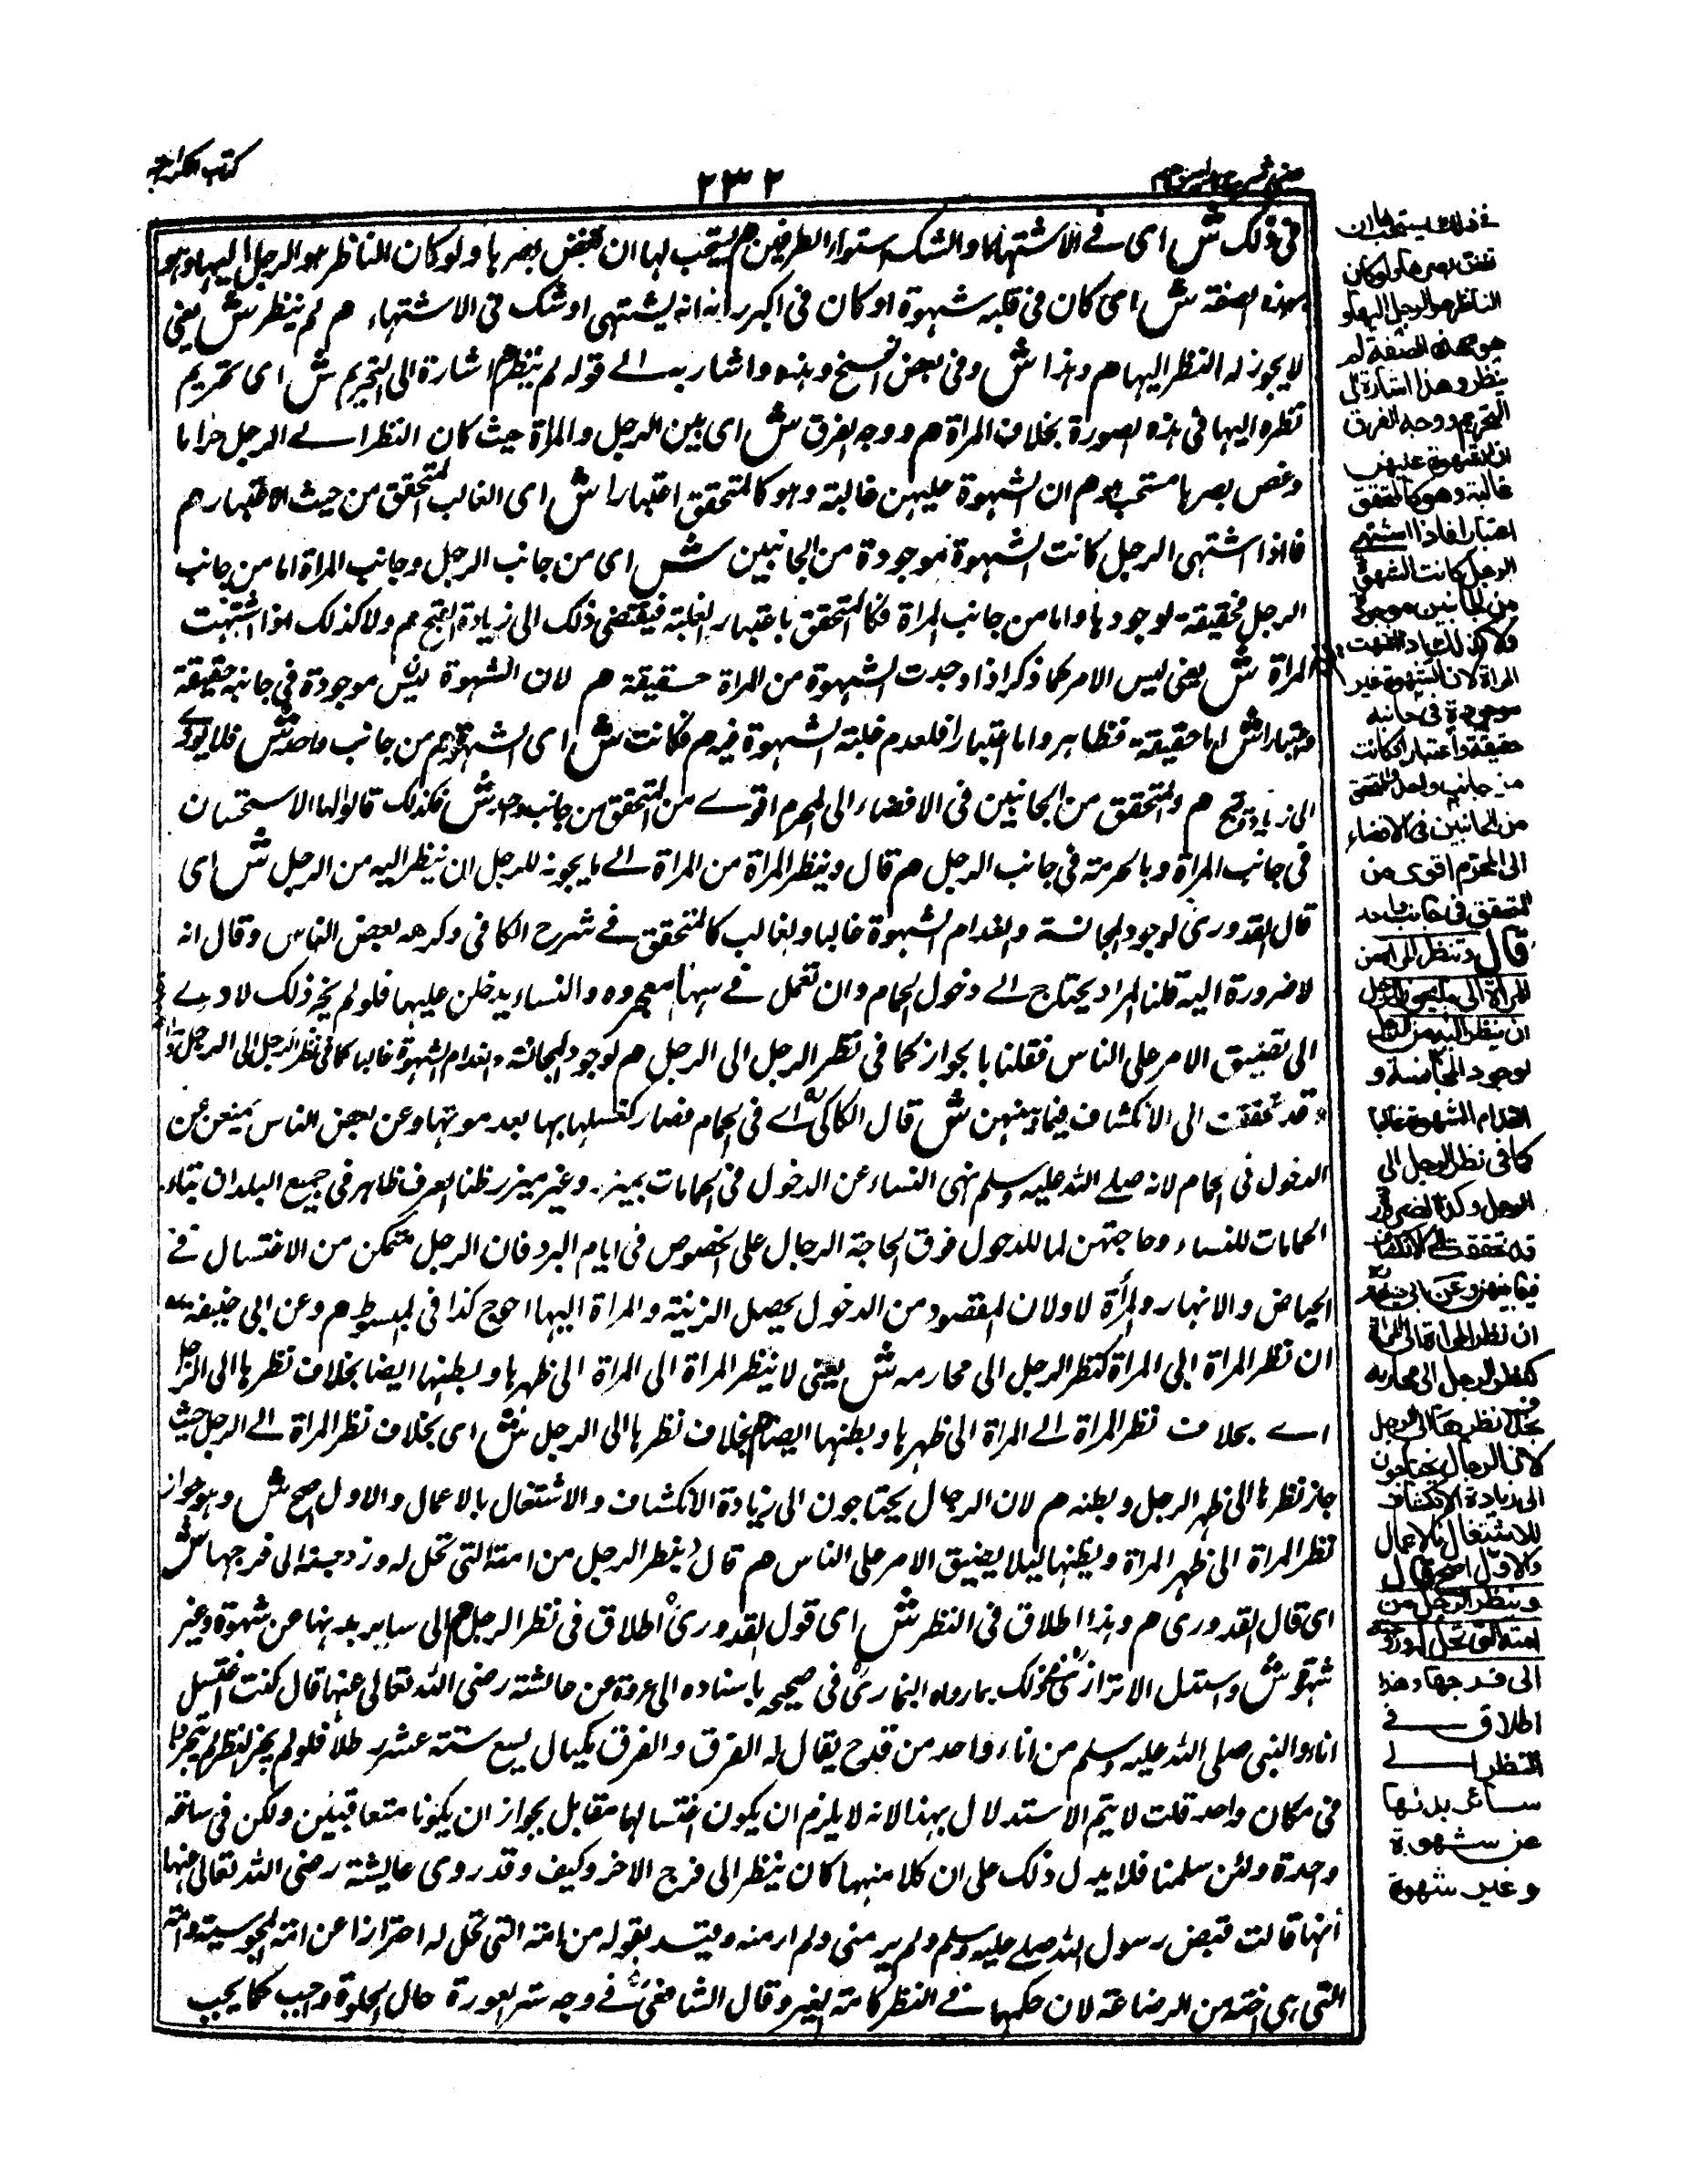 كتاب الكراهية
٢٣٢
في ذلك ش اى فے الاشتهاء والشك استواء الطرفين هم يستحب لها ان تغض بصرها ولو كان الناظر هو الرجل اليها وهو
بهذه الصفة ش اى كان في قلبه شهوة او كان في اكبر رأيه انه يشتهى او شك في الاشتهاء هم لم ينظر ش يعنى
لا يجوز له النظر اليها هم وهذا ش وفى بعض النسخ وهذه واشار به الے قوله لم ينظر هم اشارة الى التحريم ش اى تحريم
نظره اليها فى هذه الصورة بخلاف المراة هم ووجه الفرق ش اى بين الرجل والمراة حيث كان النظر الے الرجل حراما
وغض بصرها مستحب هم ان الشهوة عليهن غالبة وهو كالمتحقق اعتبارا ش اى الغالب كالمتحقق من حيث الاعتبار هم
فاذا اشتهى الرجل كانت الشهوة موجودة من الجانبين ش اى من جانب الرجل وجانب المراة اما من جانب
الرجل فحقيقة لوجودها واما من جانب المراة فكالمتحقق باعتبار الغلبة فيقتضى ذلك الى زيادة القبح هم ولا كذلك اذا اشتهت
المراة ش يعنى ليس الامر كما ذكر اذا وجدت الشهوة من المراة حقيقة هم لان الشهوة غير موجودة في جانبه حقيقة
واعتبارا ش اما حقيقة فظاهر واما اعتبارا فلعدم غلبة الشهوة فيه هم فكانت ش اى الشهوة هم من جانب واحد ش فلا يودى
الى زيادة قبح هم والمتحقق من الجانبين في الافضاء الى المحرم اقوے من المتحقق من جانب واحد ش فكذلك قالوا لها الاستحسان
في جانب المراة وبالحرمة في جانب الرجل هم قال وينظر المراة من المراة الے ما يجوز للرجل ان ينظر اليه من الرجل ش اى
قال القدورى لوجود المجانسة وانعدام الشهوة غالبا والغالب كالمتحقق فے شرح الكافى وكرهه بعض الناس وقال انه
لا ضرورة اليه قلنا المراد يحتاج الے دخول الحمام وان تعمل فے معمروه والنساء يدخلن عليها فلو لم يجز ذلك لادى
الى تضييق الامر على الناس فقلنا بالجواز كما فى نظر الرجل الى الرجل هم لوجود المجانسة وانعدام الشهوة غالبا كما فى نظر الرجل الى الرجل
قد تحققت الى الانكشاف فيما بينهن ش قال الكاكى اے فى الحمام فصار كغسلها بها بعد موتها وعن بعض الناس يمنعن عن
الدخول فى الحمام لانه صلے الله عليه وسلم نهى النساء عن الدخول فى الحمامات بميزر وغير ميزر قلنا العرف ظاهر فى جميع البلدان ببناء
الحمامات للنساء وحاجتهن للدخول فوق الحاجة الرجال على الخصوص فى ايام البرد فان الرجل يتمكن من الاغتسال فے
الحياض والانهار والمرأة لا ولان المقصود من الدخول يحصل الزينة والمراة اليها احوج كذا فى المبسوط هم وعن ابى حنيفة
ان نظر المراة الى المراة كنظر الرجل الى محارمه ش يعنى لا ينظر المراة الى المراة الى ظهرها وبطنها ايضا بخلاف نظرها الى الرجل
اے بخلاف نظر المراة الے المراة الى ظهرها وبطنها ايضا هم بخلاف نظرها الى الرجل ش اى بخلاف نظر المراة الے الرجل حيث
جاز نظرها الى ظهر الرجل وبطنه هم لان الرجال يحتاجون الى زيادة الانكشاف والاشتغال بالاعمال والاول اصح ش وهو جواز
نظر المراة الى ظهر المراة وبطنها ليلا يضيق الامر على الناس هم قال وينظر الرجل من امته التى تحل له وزوجته الى فرجها ش
اى قال القدورى هم وهذا اطلاق فى النظر ش اى قول القدورى اطلاق فى نظر الرجل هم الى ساير بدنها عن شهوة وغير
شهوة ش واستدل الاترازى فى ذلك بما رواه البخارى فى صحيحه باسناده الى عروة عن عائشة رضى الله تعالى عنها قال كنت اغتسل
انا والنبى صلى الله عليه وسلم من اناء واحد من قدح يقال له الفرق والفرق مكيال يسع ستة عشر رطلا فلو لم يجز النظر لم يتجردا
فى مكان واحد قلت لا يتم الاستدلال بهذا لانه لا يلزم ان يكون اغتسالهما مقابل بجواز ان يكونا متعاقبين ولكن فى ساعة
واحدة ولئن سلمنا فلا يدل ذلك على ان كلا منهما كان ينظر الى فرج الاخر وكيف وقد روى عايشة رضى الله تعالى عنها
انها قالت قبض رسول الله صلے عليه وسلم ولم ير منى ولم ار منه وقيد بقوله من امته التى تحل له احترازا عن امته المجوسية وامته
التى هى اخته من الرضاعة لان حكمها فے النظر كامة الغير وقال الشافعى فے وجه ستر العورة حال الخلوة واجب كما يجب
فے ذلك يستحب ان
تغض بصرها ولو كان
الناظر هو الرجل اليها و
هو بهذه الصفة لم
ينظر وهذا اشارة الى
التحريم ووجه الفرق
ان الشهوة عليهن
غالبة وهو كالمتحقق
اعتبارا فاذا اشتهى
الرجل كانت الشهوة
من الجانبين موجودة
ولا كذلك اذا اشتهت
المراة لان الشهوة غير
موجودة فى جانبه
حقيقة واعتبارا فكانت
من جانب واحد والمتحقق
من الجانبين فى الافضاء
الى المحرم اقوى من
المتحقق فى جانب واحد
قال وتنظر المراة من
المراة الى ما يجوز للرجل
ان ينظر اليه من الرجل
لوجود المجانسة و
انعدام الشهوة غالبا
كما فى نظر الرجل الى
الرجل وكذا الضرورة
قد تحققت الى الانكشاف
فيما بينهن وعن ابى حنيفة
ان نظر المراة الى المراة
كنظر الرجل الى محارمه
بخلاف نظرها الى الرجل
لان الرجال يحتاجون
الى زيادة الانكشاف
للاشتغال بالاعمال
والاول اصح قال
وينظر الرجل من
امته التى تحل له وزوجته
الى فرجها وهذا
اطلاق فے
النظر الے
سائر بدنها
عن شهوة
وغير شهوة